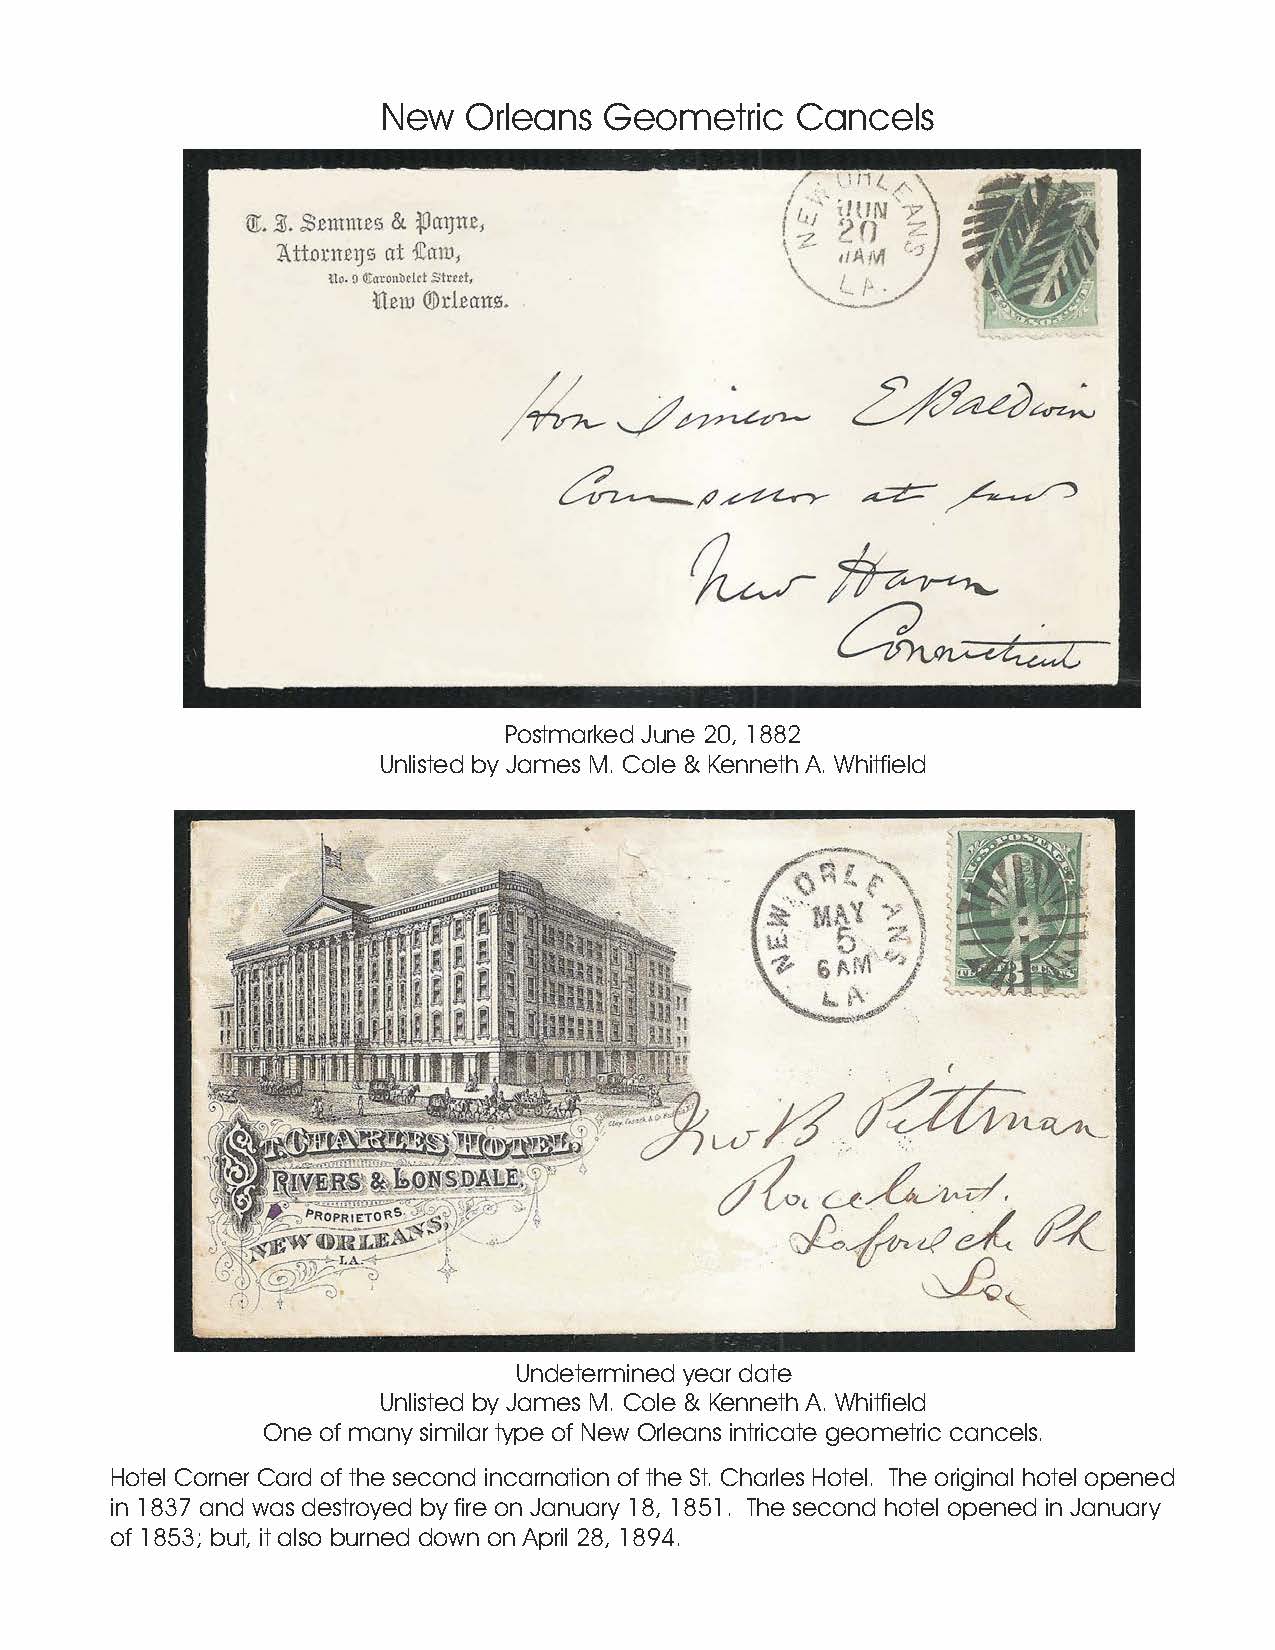 New Orleans Geometric Cancels
T. J. Semmes & Payne,
Attorneys at Law,
No. 9 Carondelet Street,
New Orleans.
NEW ORLEANS
JUN
20
AM
LA.
Hon Simeon E Baldwin
Counsellor at law
New Haven
Connecticut
Postmarked June 20, 1882
Unlisted by James M. Cole & Kenneth A. Whitfield
NEW ORLEANS
MAY
5
6 AM
LA
U.S. POSTAGE
3 CENTS
ST. CHARLES HOTEL.
RIVERS & LONSDALE,
PROPRIETORS.
NEW ORLEANS,
LA.
Jno B Pittman
Raceland.
Lafourche Ph
La
Undetermined year date
Unlisted by James M. Cole & Kenneth A. Whitfield
One of many similar type of New Orleans intricate geometric cancels.
Hotel Corner Card of the second incarnation of the St. Charles Hotel. The original hotel opened
in 1837 and was destroyed by fire on January 18, 1851. The second hotel opened in January
of 1853; but, it also burned down on April 28, 1894.